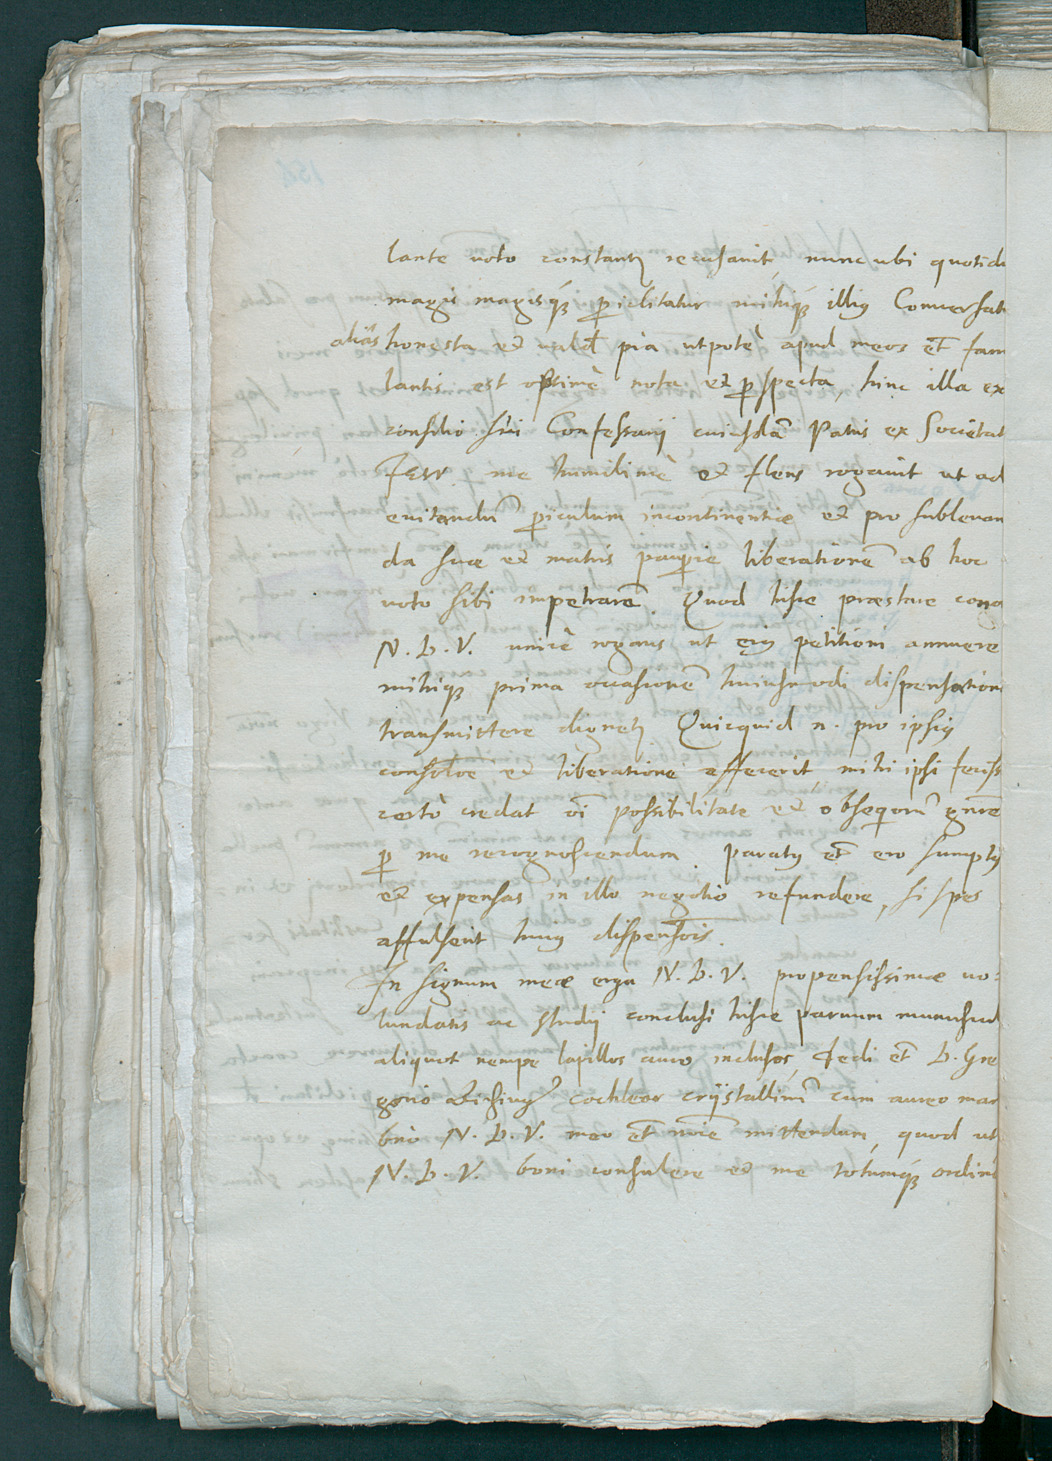 lante voto constanter recusavit, nunc ubi quotidi
magis magisq̃ꝫ p̱iclitatur mihiq̃ꝫ illiꝰ Conversati
aliàs honesta et valdè pia utpotè apud meos et̄ fam
lantis est optimè nota et p̱specta, hinc illa ex
consilio sui Confessarij cuiusdā Patris ex Societat
Iesu me humilimè et flens rogavit ut ad
evitandū p̱iculum incontinentiæ et pro sublevan
da suæ et matris paup̱ie liberationē ab hoc
voto sibi impetrarē. Quod hisce præstare cono
N. D. V. unicè rogans ut eiꝰ petitioni annuere
mihiq̃ꝫ prima occasione huiusmodi dispensatione
transmittere dignetr Quicquid n. pro ipsiꝰ
consolōe et liberatione effecerit, mihi ipsi feciss
certò credat oī possibilitate et obsequiorū gn̄re
p̱ me recognoscendum. paratꝰ et̄ ero sumptꝰ
et expensas in illo negotio refundere, si spes
affulserit huiꝰ dispensōis.
In signum meæ erga N. D. V. propensissimæ vo:
luntatis ac studij conclusi hisce parvum munuscul
aliquot nempe lapillos auro inclusos, dedi et̄ D. Gre
gorio cochlear cristallinū cum aureo man
brio N. D. V. meo et̄ noīe mittendum, quod ut
N. D. V. boni consulere et me totumq̃ꝫ ordine